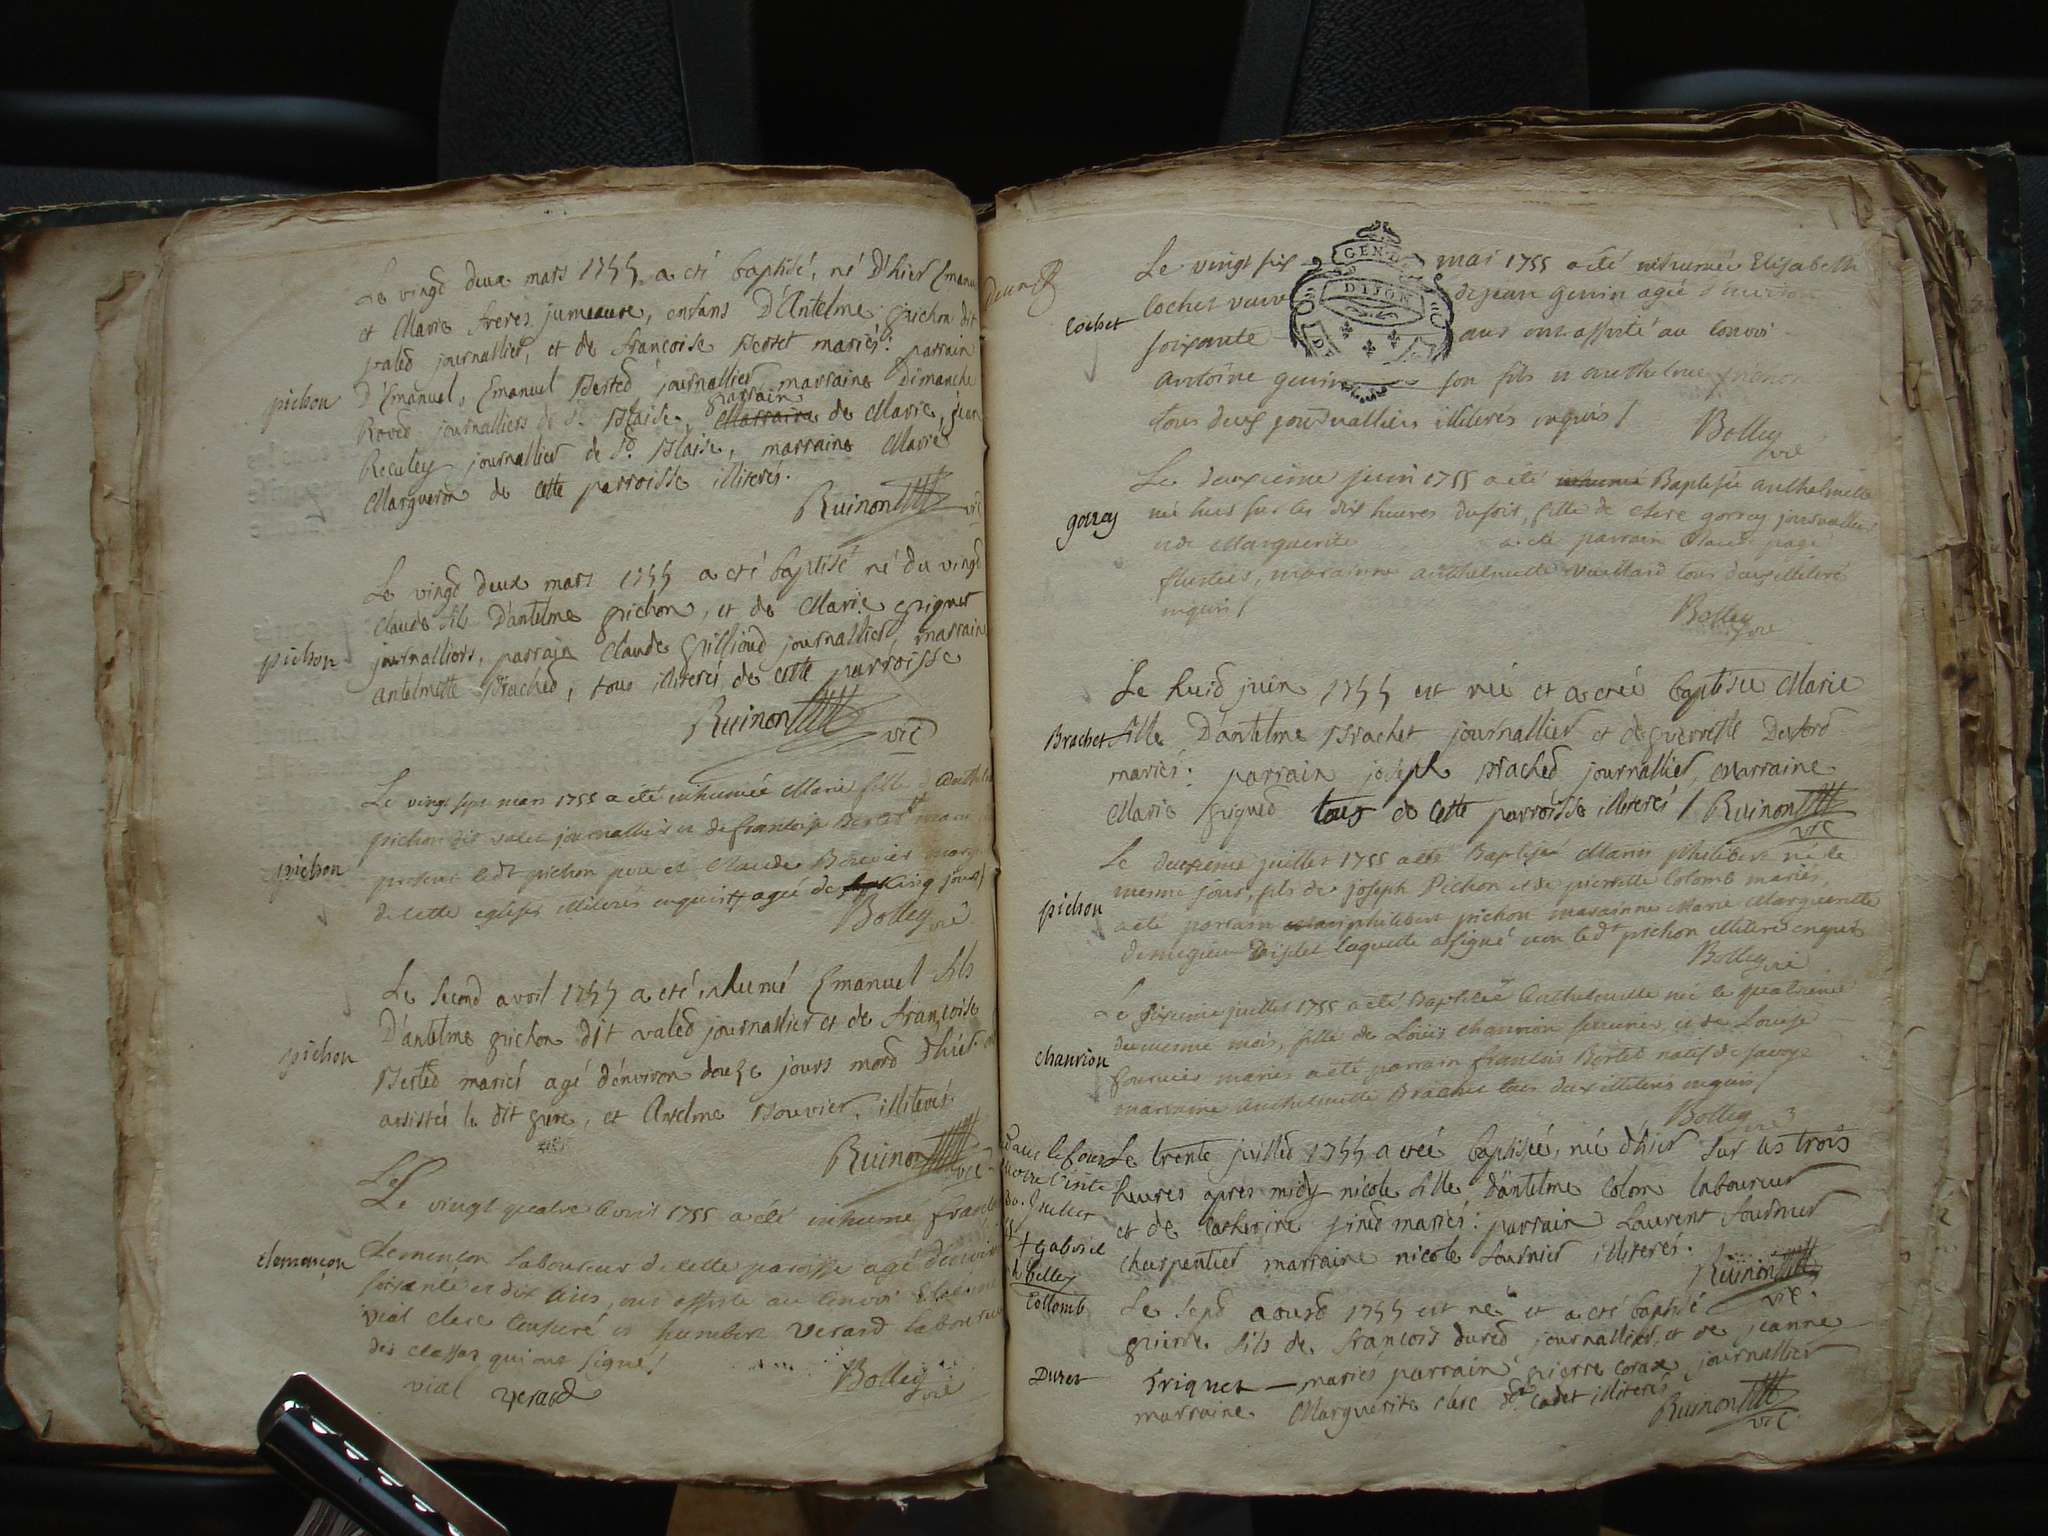 Le vingd deux mars 1755 a eté baptisé, né d'hier Emanuel
et Marie freres jumeaux, enfans D'Antelme pichon dit
valed journallier, et de françoise Berset mariés: parrain
pichon
D'Emanuel, Emanuel Berted journallier marraine Dimanche
Roved journalliers de St. Blaise. parrain Marraine de Marie, jean
Reculey journallier de St. Blaise, marraine Marie
Margueron de cette parroisse illiterés.
Ruinon vic
Le vingd deux mars 1755 a eté baptisé né du vingd
Claude fils D'antelme pichon, et de Marie griguet
pichon
journalliers, parrain Claude gillioud journallier, marraine
antelmette Brached, tous illiterés de cette parroisse
Ruinon vic
Le vingt sept mars 1755 a eté inhumée Marie fille d'Anthelme
pichon dit valet journallier et de francoise Bertet
pichon
present ledt pichon pere et Claude Bouvier
de cette eglise illiterés enquis agée de cinq jours
Bolley vic
Le second avril 1755 a eté inhumé Emanuel fils
D'antelme pichon dit valed journallier et de françoise
pichon
Berted mariés agé d'environ douze jours mord d'hier
assistés le dit pere, et Anselme Bouvier, illiterés.
Ruinon vic
Le vingt quatre avril 1755 a eté inhumé françois
clemençon
Clemençon laboureur de cette paroisse agé d'environ
soixante et dix ans, ont assisté au convoi Etienne
vial clerc tonsuré et humbert verard laboureur
des classes qui ont signé /
vial verard
Bolley vic
Le vingt six mai 1755 a été inhumée Elisabeth
cochet
cochet veuve de jean genin agée d'environ
soixante ans ont assisté au convoi
antoine genin son fils et anthelme pichon
tous deux journalliers illiterés enquis /
Bolley vic
GEN DIJON
Le deuxieme juin 1755 a eté inhumé Baptisée anthelmette
gorray
née hier sur les dix heures du soir, fille de clere gorray journallier
et de Marguerite a eté parrain Claude page
marainne anthelmette vuillard tous deux illiterés
enquis /
Bolley vic
Le huid juin 1755 est née et a etée baptisée Marie
Brachet
fille D'antelme Brachet journallier et de pierrette Deford
mariés: parrain joseph Brached journallier, Marraine
Marie griguet tous de cette parroisse illiterés / Ruinon vic
Le deuxieme juillet 1755 a eté Baptisé Marin philibert né le
mesme jour, fils de joseph Pichon et de pierrette Colomb mariés,
pichon
a eté parrain philibert pichon marainne Marie Margueritte
Demigieu Dijslet laquelle a signé non ledt pichon illiteré enquis
Bolley vic
Le sixieme juillet 1755 a eté Baptisée Anthelmette née le quatrieme
du mesme mois, fille de Louis chanrion serrurier et de Louise
chanrion
fournier mariés a eté parrain francois Bertet natif de savoye
marraine Anthelmette Brachet tous deux illiterés enquis /
Bolley vic
Le trente juilled 1755 a eté baptisée, née d'hier sur les trois
heures apres midy nicole fille d'antelme Colom laboureur
et de Catherine pined mariés: parrain Laurent fournier
+ gabriel
charpentier marraine nicole fournier illiterés.
Ruinon vic.
Collomb
Le sepd aoust 1755 est né et a eté baptisé
pierre fils de francois dured, journallier, et de jeanne
Duret
Griguet — mariés parrain pierre corax journallier
marraine Marguerite clerc dt. Cadet illiterés
Ruinon vic